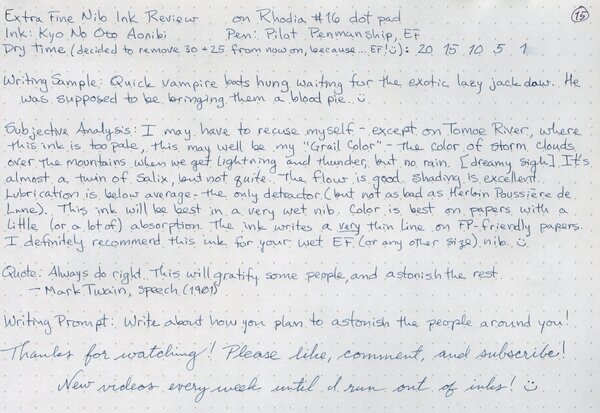 Extra Fine Nib Ink Review on Rhodia #16 dot pad 15
Ink: Kyo No Oto Aonibi Pen: Pilot Penmanship, EF
Dry Time (decided to remove 30 + 25 from now on, because... EF! ☺): 20 15 10 5 1
Writing Sample: Quick vampire bats hung waiting for the exotic lazy jackdaw. He
was supposed to be bringing them a blood pie. ☺
Subjective Analysis: I may have to recuse myself - except on Tomoe River, where
this ink is too pale, this may well be my "Grail Color" - the color of storm clouds
over the mountains when we get lightning and thunder, but no rain. [dreamy sigh] It's
almost a twin of Salix, but not quite. The flow is good. Shading is excellent.
Lubrication is below average - the only detractor (but not as bad as Herbin Poussière de
Lune). This ink will be best in a very wet nib. Color is best on papers with a
little (or a lot of) absorption. The ink writes a very thin line on FP-friendly papers.
I definitely recommend this ink for your wet EF (or any other size) nib. ☺
Quote: Always do right. This will gratify some people, and astonish the rest.
- Mark Twain, speech (1901)
Writing Prompt: Write about how you plan to astonish the people around you!
Thanks for watching! Please like, comment, and subscribe!
New videos every week until I run out of inks! ☺